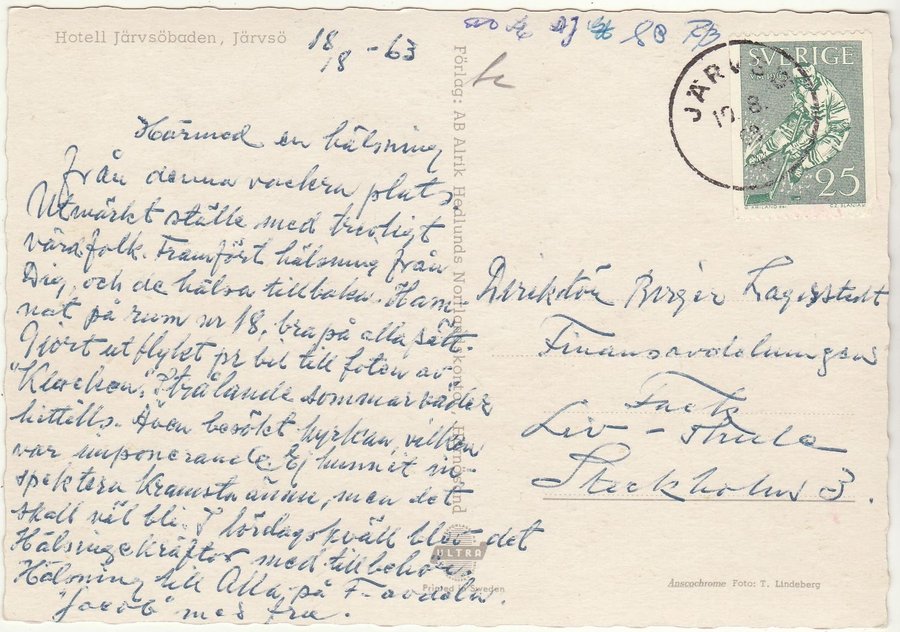 Hotell Järvsöbaden, Järvsö
18/8 - 63
Härmed en hälsning
från denna vackra plats.
Utmärkt ställe med trevligt
värdfolk. Framfört hälsning från
Dig, och de hälsa tillbaka. Ham-
nat på rum nr 18, bra på alla sätt.
Gjort utflykt pr bil till foten av
"Klacken". Strålande sommarväder
hittills. Även besökt kyrkan, vilken
var imponerande. Ej hunnit in-
spektera Kramsta ännu, men det
skall väl bli. I lördagskväll blev det
Hälsingekräftor med tillbehör.
Hälsning till Alla på F-avdeln.
"Jacob" med fru.
Förlag: AB Alrik Hedlunds Norrlandskontor, Härnösand
ULTRA
Printed in Sweden
SVERIGE
25
C Z. SLANIA SC.
JÄRVSÖ
Direktör Birger Lagerstedt
Finansavdelningen
Fack
Liv-Thule
Stockholm 3.
Anscochrome Foto: T. Lindeberg